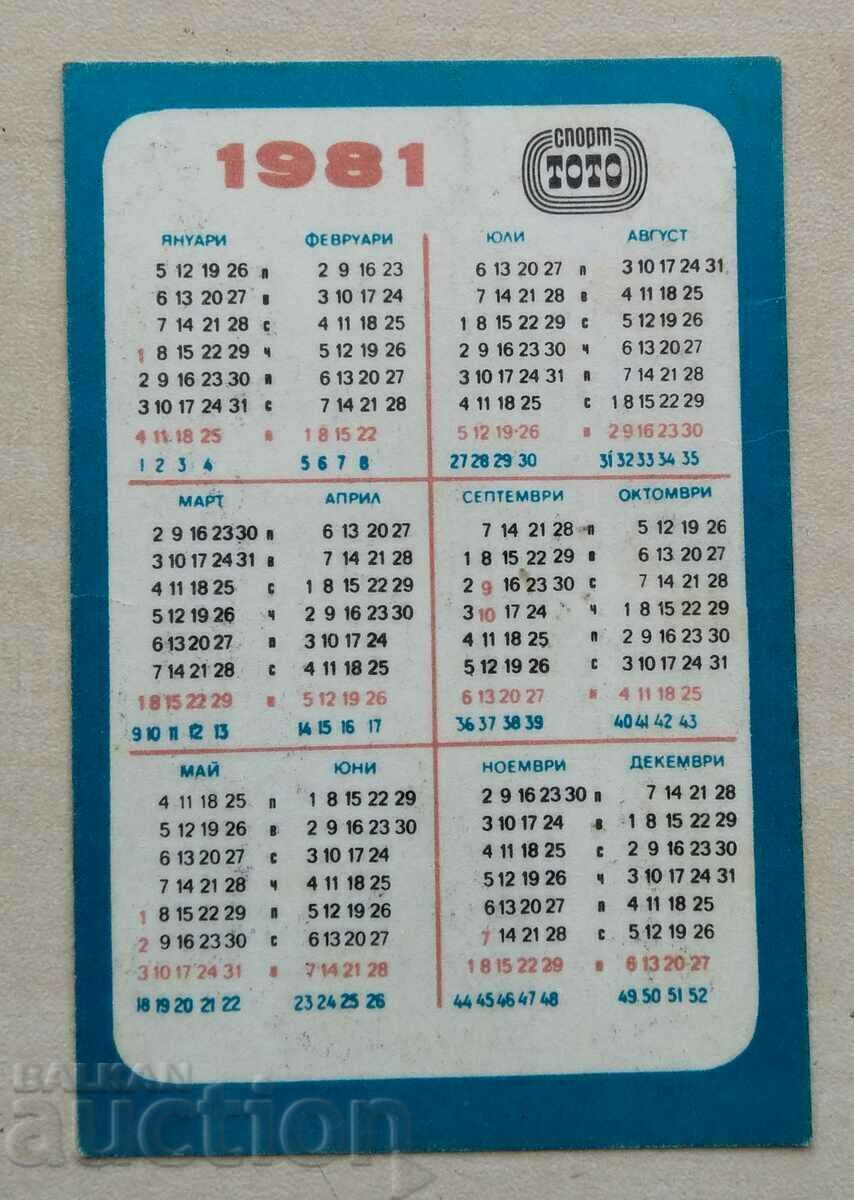 1981
спорт
ТОТО
ЯНУАРИ ФЕВРУАРИ
5 12 19 26 п 2 9 16 23
6 13 20 27 в 3 10 17 24
7 14 21 28 с 4 11 18 25
1 8 15 22 29 ч 5 12 19 26
2 9 16 23 30 п 6 13 20 27
3 10 17 24 31 с 7 14 21 28
4 11 18 25 н 1 8 15 22
1 2 3 4 5 6 7 8
ЮЛИ АВГУСТ
6 13 20 27 п 3 10 17 24 31
7 14 21 28 в 4 11 18 25
1 8 15 22 29 с 5 12 19 26
2 9 16 23 30 ч 6 13 20 27
3 10 17 24 31 п 7 14 21 28
4 11 18 25 с 1 8 15 22 29
5 12 19 26 н 2 9 16 23 30
27 28 29 30 31 32 33 34 35
МАРТ АПРИЛ
2 9 16 23 30 п 6 13 20 27
3 10 17 24 31 в 7 14 21 28
4 11 18 25 с 1 8 15 22 29
5 12 19 26 ч 2 9 16 23 30
6 13 20 27 п 3 10 17 24
7 14 21 28 с 4 11 18 25
1 8 15 22 29 н 5 12 19 26
9 10 11 12 13 14 15 16 17
СЕПТЕМВРИ ОКТОМВРИ
7 14 21 28 п 5 12 19 26
1 8 15 22 29 в 6 13 20 27
2 9 16 23 30 с 7 14 21 28
3 10 17 24 ч 1 8 15 22 29
4 11 18 25 п 2 9 16 23 30
5 12 19 26 с 3 10 17 24 31
6 13 20 27 н 4 11 18 25
36 37 38 39 40 41 42 43
МАЙ ЮНИ
4 11 18 25 п 1 8 15 22 29
5 12 19 26 в 2 9 16 23 30
6 13 20 27 с 3 10 17 24
7 14 21 28 ч 4 11 18 25
1 8 15 22 29 п 5 12 19 26
2 9 16 23 30 с 6 13 20 27
3 10 17 24 31 н 7 14 21 28
18 19 20 21 22 23 24 25 26
НОЕМВРИ ДЕКЕМВРИ
2 9 16 23 30 п 7 14 21 28
3 10 17 24 в 1 8 15 22 29
4 11 18 25 с 2 9 16 23 30
5 12 19 26 ч 3 10 17 24 31
6 13 20 27 п 4 11 18 25
7 14 21 28 с 5 12 19 26
1 8 15 22 29 н 6 13 20 27
44 45 46 47 48 49 50 51 52
BALKAN
auction